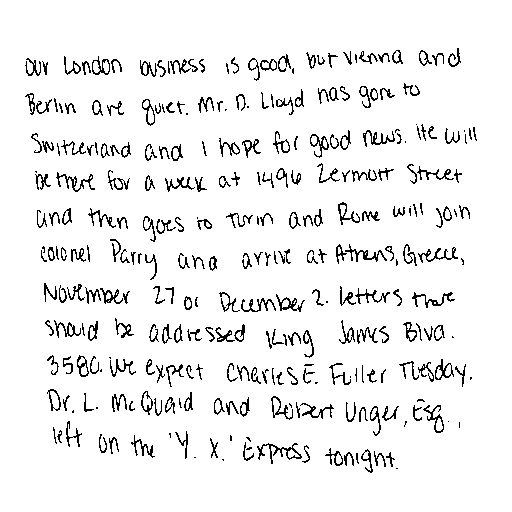 our London business is good, but Vienna and
Berlin are quiet. Mr. D. Lloyd has gone to
Switzerland and I hope for good news. He will
be there for a week at 1496 Zermott Street
and then goes to Turin and Rome will join
colonel Parry and arrive at Athens, Greece,
November 27 or December 2. Letters there
should be addressed King James Blva.
3580. We expect Charles E. Fuller Tuesday.
Dr. L. McQuaid and Robert Unger, Esq.,
left on the 'Y. X.' Express tonight.